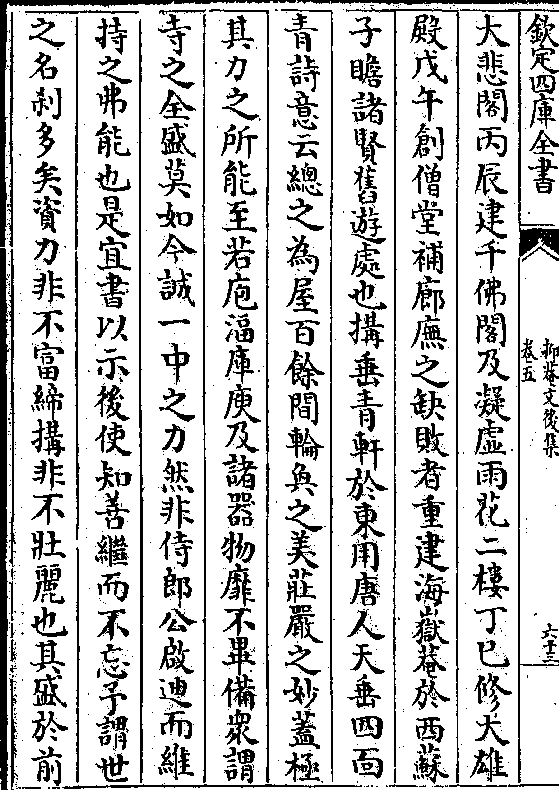 欽定四庫全書
抑菴文後集
卷五
六十三
大悲閣丙辰建千佛閣及凝虛雨花二樓丁巳修大雄
殿戊午創僧堂補廊廡之缺敗者重建海嶽菴於西蘇
子瞻諸賢舊遊處也搆垂青軒於東用唐人天垂四面
青詩意云總之為屋百餘間輪奐之美莊嚴之妙蓋極
其力之所能至若庖湢庫庾及諸器物靡不畢備衆謂
寺之全盛莫如今誠一中之力然非侍郎公啟迪而維
持之弗能也是宜書以示後使知善繼而不忘予謂世
之名刹多矣資力非不富締搆非不壯麗也其盛於前